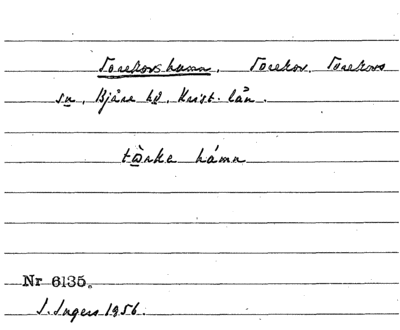 Torekovshamn, Torekov, Torekovs
sn, Bjäre hd, Krist. län.
tὼrke hámn
Nr 6135.
I. Ingers 1956.